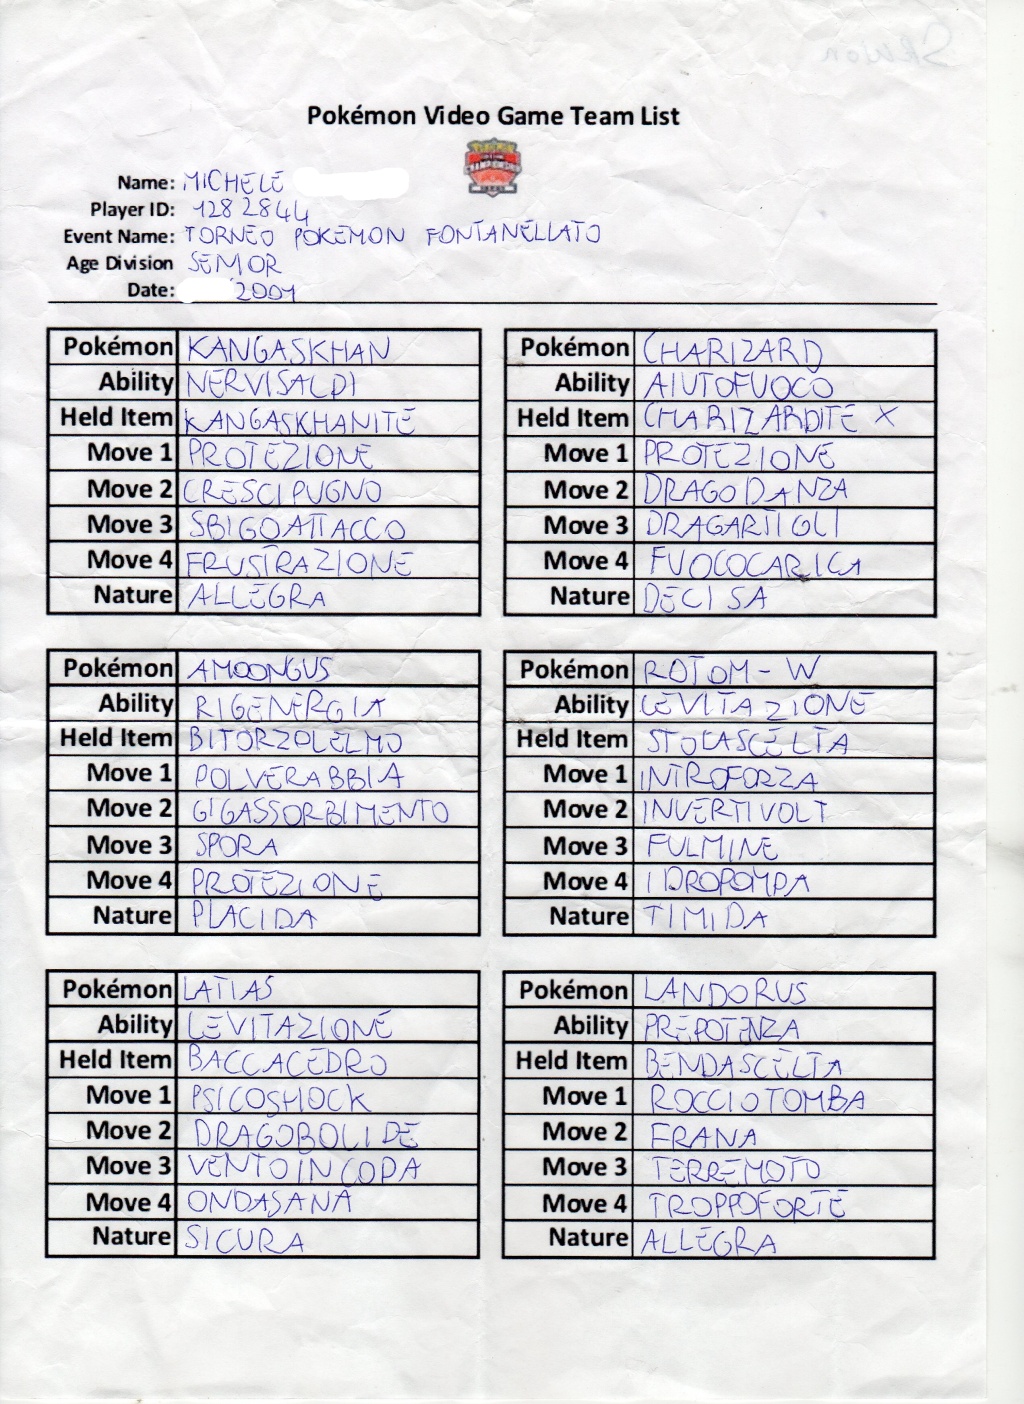 Pokémon Video Game Team List
Name: MICHELE
Player ID: 1282844
Event Name: TORNEO POKEMON FONTANELLATO
Age Division SENIOR
Date: 2001
Pokémon KANGASKHAN
Ability NERVISALDI
Held Item KANGASKHANITE
Move 1 PROTEZIONE
Move 2 CRESCIPUGNO
Move 3 SBIGOATTACCO
Move 4 FRUSTRAZIONE
Nature ALLEGRA
Pokémon CHARIZARD
Ability AIUTOFUOCO
Held Item CHARIZARDITE X
Move 1 PROTEZIONE
Move 2 DRAGODANZA
Move 3 DRAGARTIGLI
Move 4 FUOCOCARICA
Nature DECISA
Pokémon AMOONGUS
Ability RIGENERGIA
Held Item BITORZOLELMO
Move 1 POLVERABBIA
Move 2 GIGASSORBIMENTO
Move 3 SPORA
Move 4 PROTEZIONE
Nature PLACIDA
Pokémon ROTOM-W
Ability LEVITAZIONE
Held Item STOLASCELTA
Move 1 INTROFORZA
Move 2 INVERTIVOLT
Move 3 FULMINE
Move 4 IDROPOMPA
Nature TIMIDA
Pokémon LATIAS
Ability LEVITAZIONE
Held Item BACCACEDRO
Move 1 PSICOSHOCK
Move 2 DRAGOBOLIDE
Move 3 VENTOINCOPA
Move 4 ONDASANA
Nature SICURA
Pokémon LANDORUS
Ability PREPOTENZA
Held Item BENDASCELTA
Move 1 ROCCIOTOMBA
Move 2 FRANA
Move 3 TERREMOTO
Move 4 TROPPOFORTE
Nature ALLEGRA